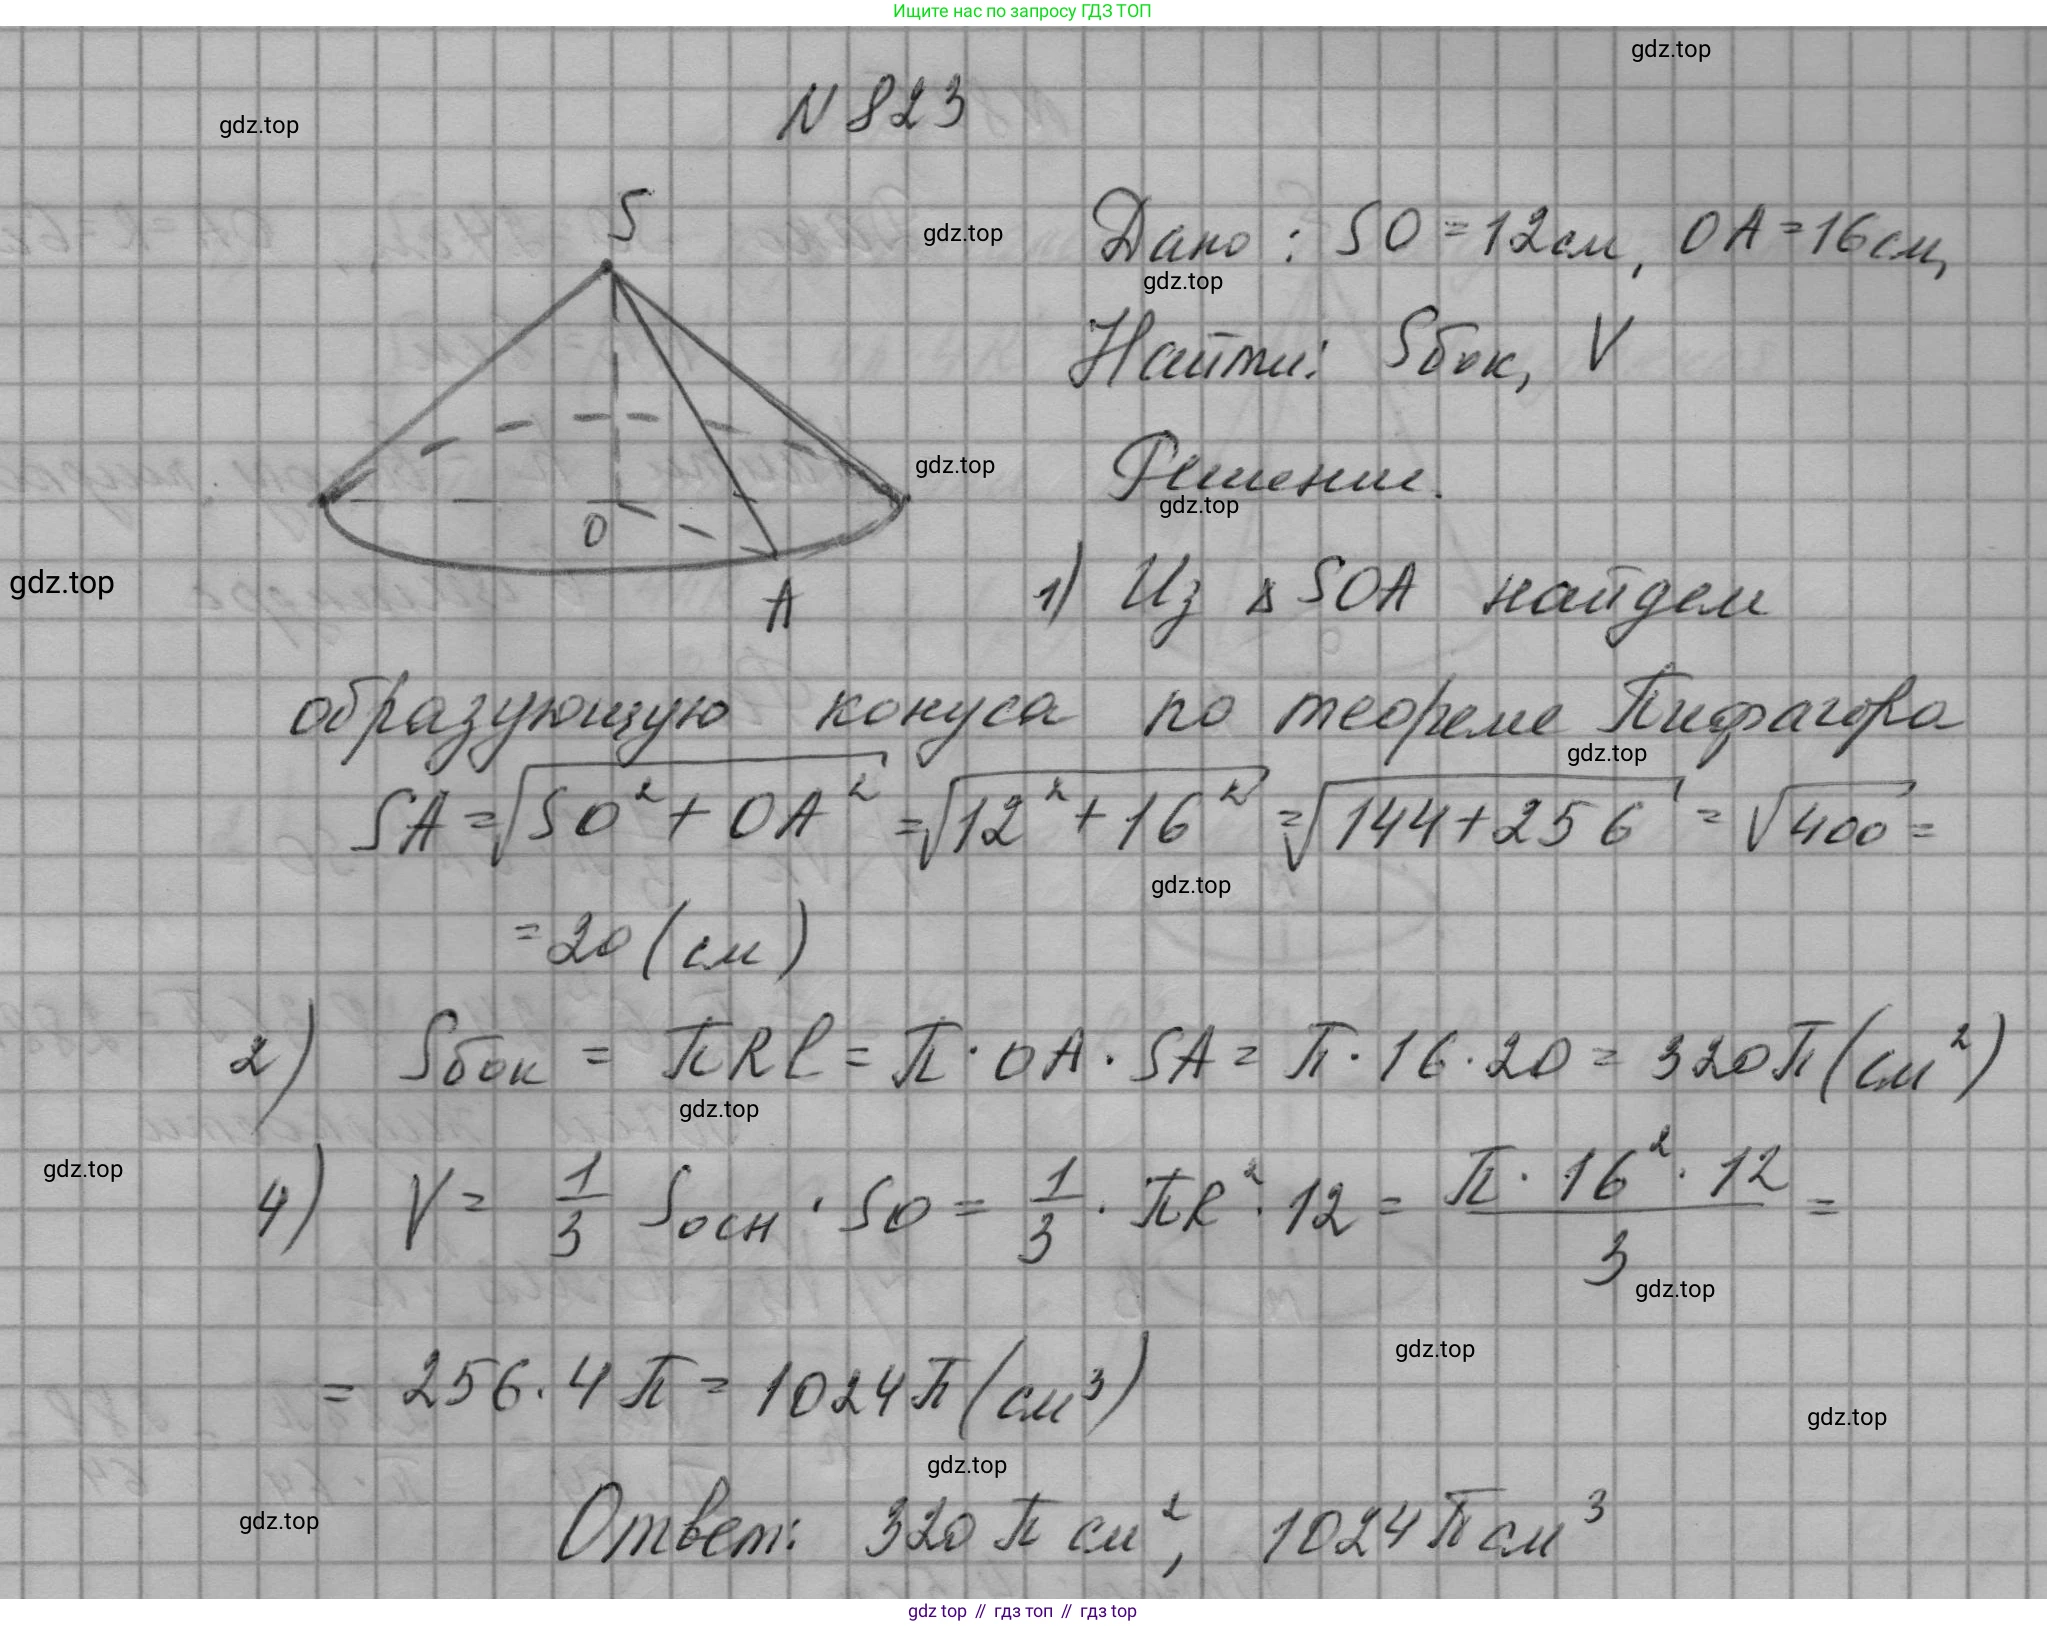 Ищите нас по запросу ГДЗ ТОП
gdz.top
gdz.top
N 823
S
gdz.top
Дано: SO = 12см, OA = 16см,
gdz.top
Найти: Sбок, V
gdz.top
Решение.
gdz.top
O
gdz.top
A
1) Из △ SOA найдем
образующую конуса по теореме Пифагора
gdz.top
SA = √SO² + OA² = √12² + 16² = √144 + 256 = √400 =
gdz.top
= 20 (см)
2) Sбок = πRl = π · OA · SA = π · 16 · 20 = 320π (см²)
gdz.top
gdz.top
4) V = 1/3 Sосн · SO = 1/3 · πR² · 12 = π · 16² · 12 / 3 =
gdz.top
gdz.top
= 256 · 4π = 1024π (см³)
gdz.top
gdz.top
gdz.top
Ответ: 320π см², 1024π см³
gdz.top // гдз топ // gdz.top